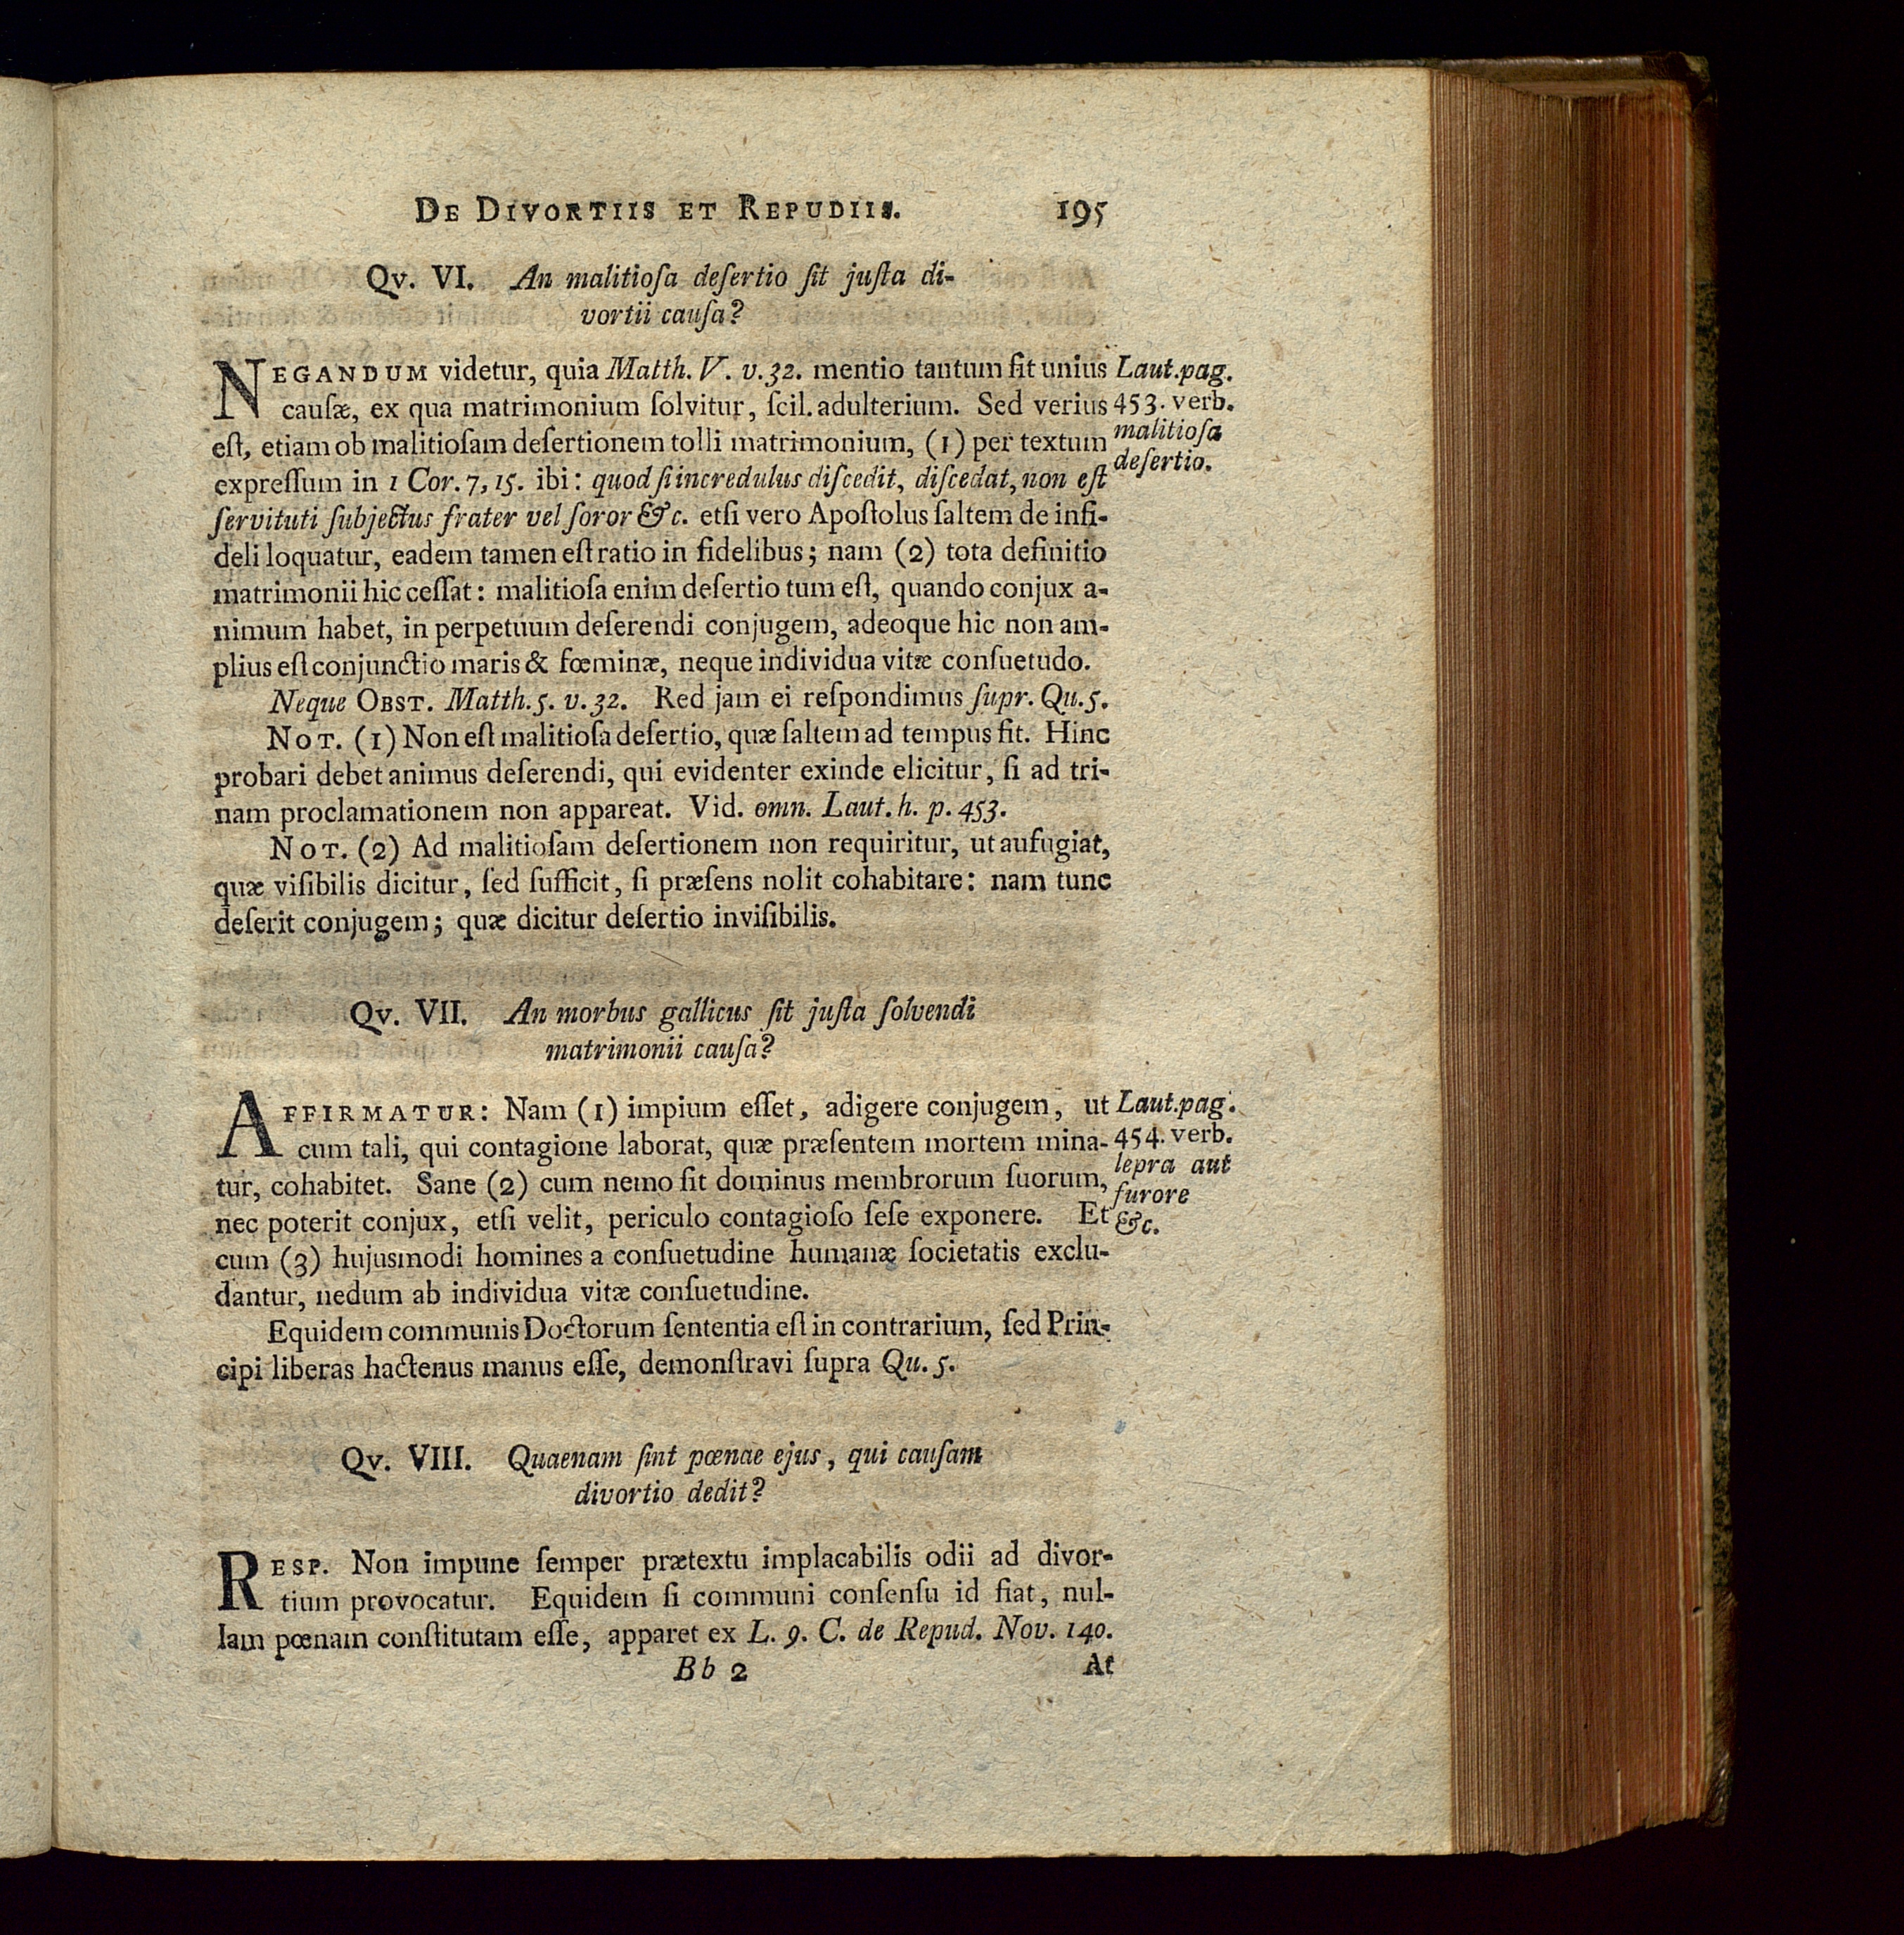 De Divortiis et Repudiis. 195
Qv. VI. An malitioſa deſertio ſit juſta di-
vortii cauſa?
NEGANDUM videtur, quia Matth. V. v. 32. mentio tantum fit unius
cauſæ, ex qua matrimonium ſolvitur, ſcil. adulterium. Sed verius
eſt, etiam ob malitioſam deſertionem tolli matrimonium, (1) per textum
expreſſum in 1 Cor. 7, 15. ibi: quod ſi incredulus diſcedit, diſcedat, non eſt
ſervituti ſubjectus frater vel ſoror &c. etſi vero Apoſtolus ſaltem de infi-
deli loquatur, eadem tamen eſt ratio in fidelibus; nam (2) tota definitio
matrimonii hic ceſſat: malitioſa enim deſertio tum eſt, quando conjux a-
nimum habet, in perpetuum deſerendi conjugem, adeoque hic non am-
plius eſt conjunctio maris & fœminæ, neque individua vitæ conſuetudo.
Laut. pag.
453. verb.
malitioſa
deſertio.
Neque Obst. Matth. 5. v. 32. Red jam ei reſpondimus ſupr. Qu. 5.
Not. (1) Non eſt malitioſa deſertio, quæ ſaltem ad tempus fit. Hinc
probari debet animus deſerendi, qui evidenter exinde elicitur, ſi ad tri-
nam proclamationem non appareat. Vid. omn. Laut. h. p. 453.
Not. (2) Ad malitioſam deſertionem non requiritur, ut aufugiat,
quæ viſibilis dicitur, ſed ſufficit, ſi præſens nolit cohabitare: nam tunc
deſerit conjugem; quæ dicitur deſertio inviſibilis.
Qv. VII. An morbus gallicus ſit juſta ſolvendi
matrimonii cauſa?
AFFIRMATUR: Nam (1) impium eſſet, adigere conjugem, ut
cum tali, qui contagione laborat, quæ præſentem mortem mina-
tur, cohabitet. Sane (2) cum nemo ſit dominus membrorum ſuorum,
nec poterit conjux, etſi velit, periculo contagioſo ſeſe exponere. Et
cum (3) hujusmodi homines a conſuetudine humanæ ſocietatis exclu-
dantur, nedum ab individua vitæ conſuetudine.
Laut. pag.
454. verb.
lepra aut
furore
&c.
Equidem communis Doctorum ſententia eſt in contrarium, ſed Prin-
cipi liberas hactenus manus eſſe, demonſtravi ſupra Qu. 5.
Qv. VIII. Quaenam ſint pœnae ejus, qui cauſam
divortio dedit?
RESP. Non impune ſemper prætextu implacabilis odii ad divor-
tium provocatur. Equidem ſi communi conſenſu id fiat, nul-
lam pœnam conſtitutam eſſe, apparet ex L. 9. C. de Repud. Nov. 140.
Bb 2 At